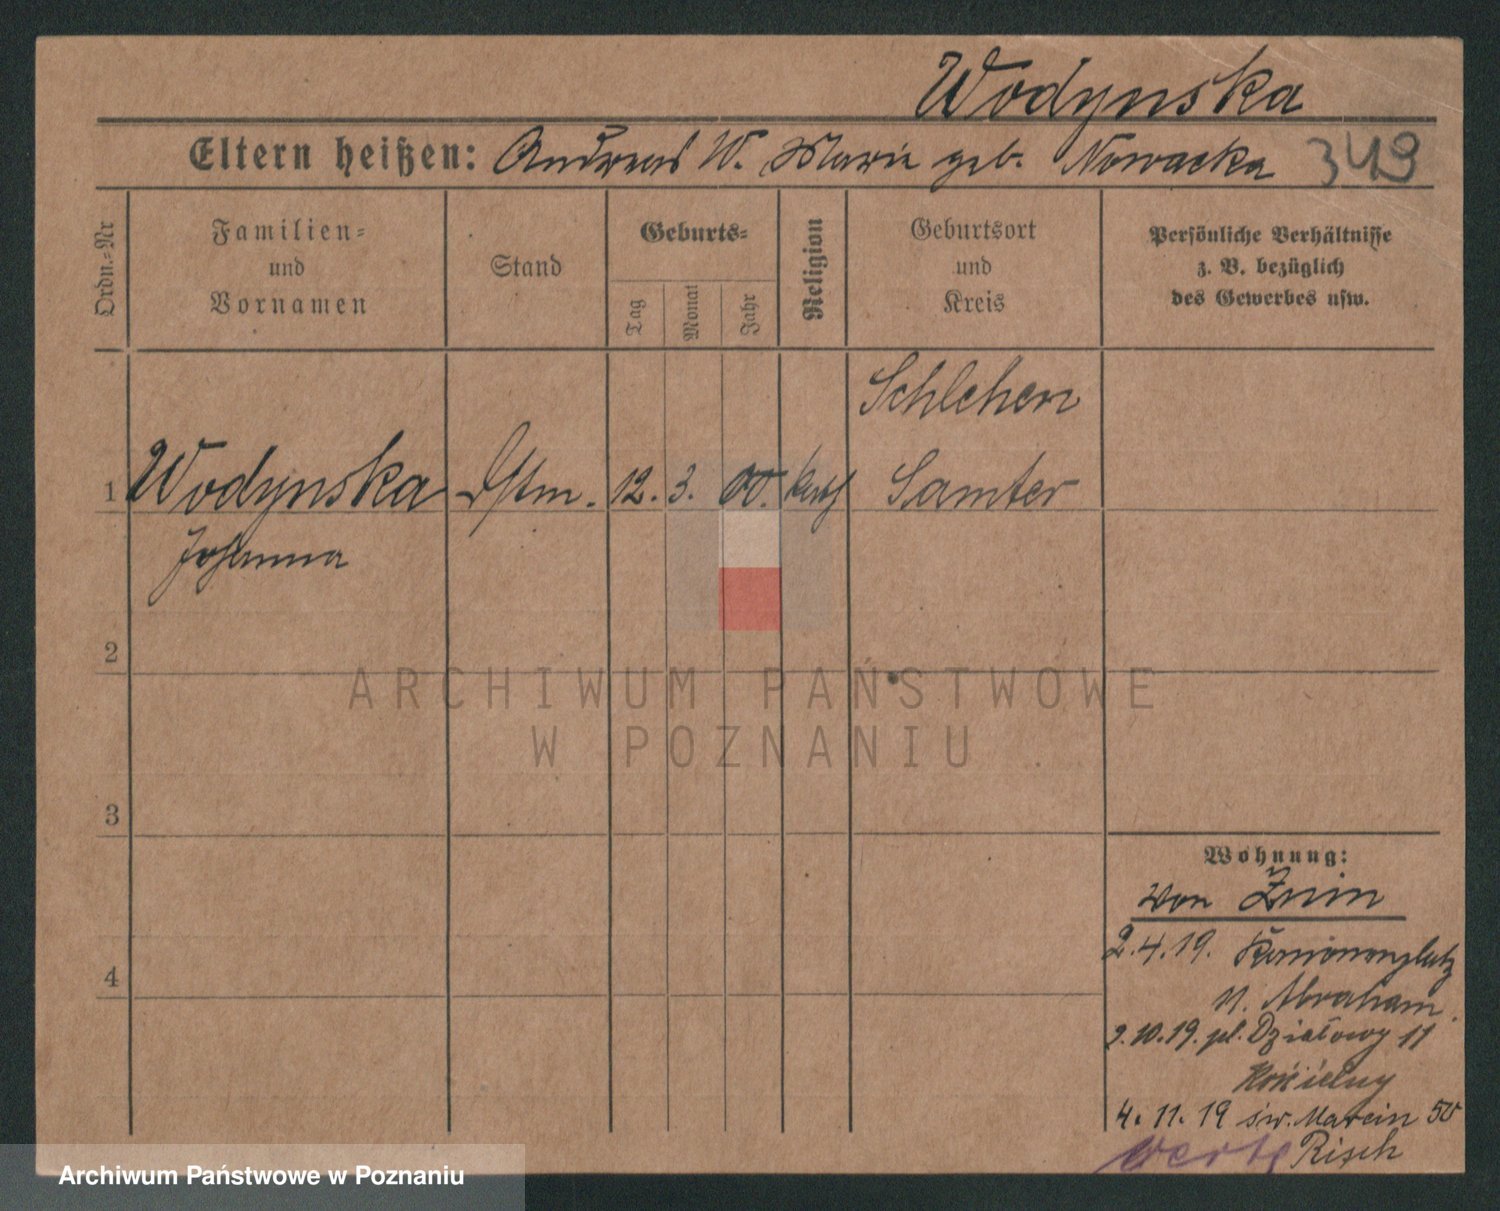 Wodynska
Eltern heißen: Andreas W. Marie geb. Nowacka 349
Ordn.=Nr
Familien=
und
Vornamen
Stand
Geburts=
Tag
Monat
Jahr
Religion
Geburtsort
und
Kreis
Persönliche Verhältnisse
z. B. bezüglich
des Gewerbes usw.
Schlehen
1 Wodynska Dstm. 12. 3. 00. kath Samter
Johanna
2
3
4
Wohnung:
von Znin
2.4.19. Kanonenplatz
11. Abraham.
2.10.19. pl. Działowy 11
Kościelny
4.11.19 św. Marcin 50
Risch
ARCHIWUM PAŃSTWOWE
W POZNANIU
Archiwum Państwowe w Poznaniu